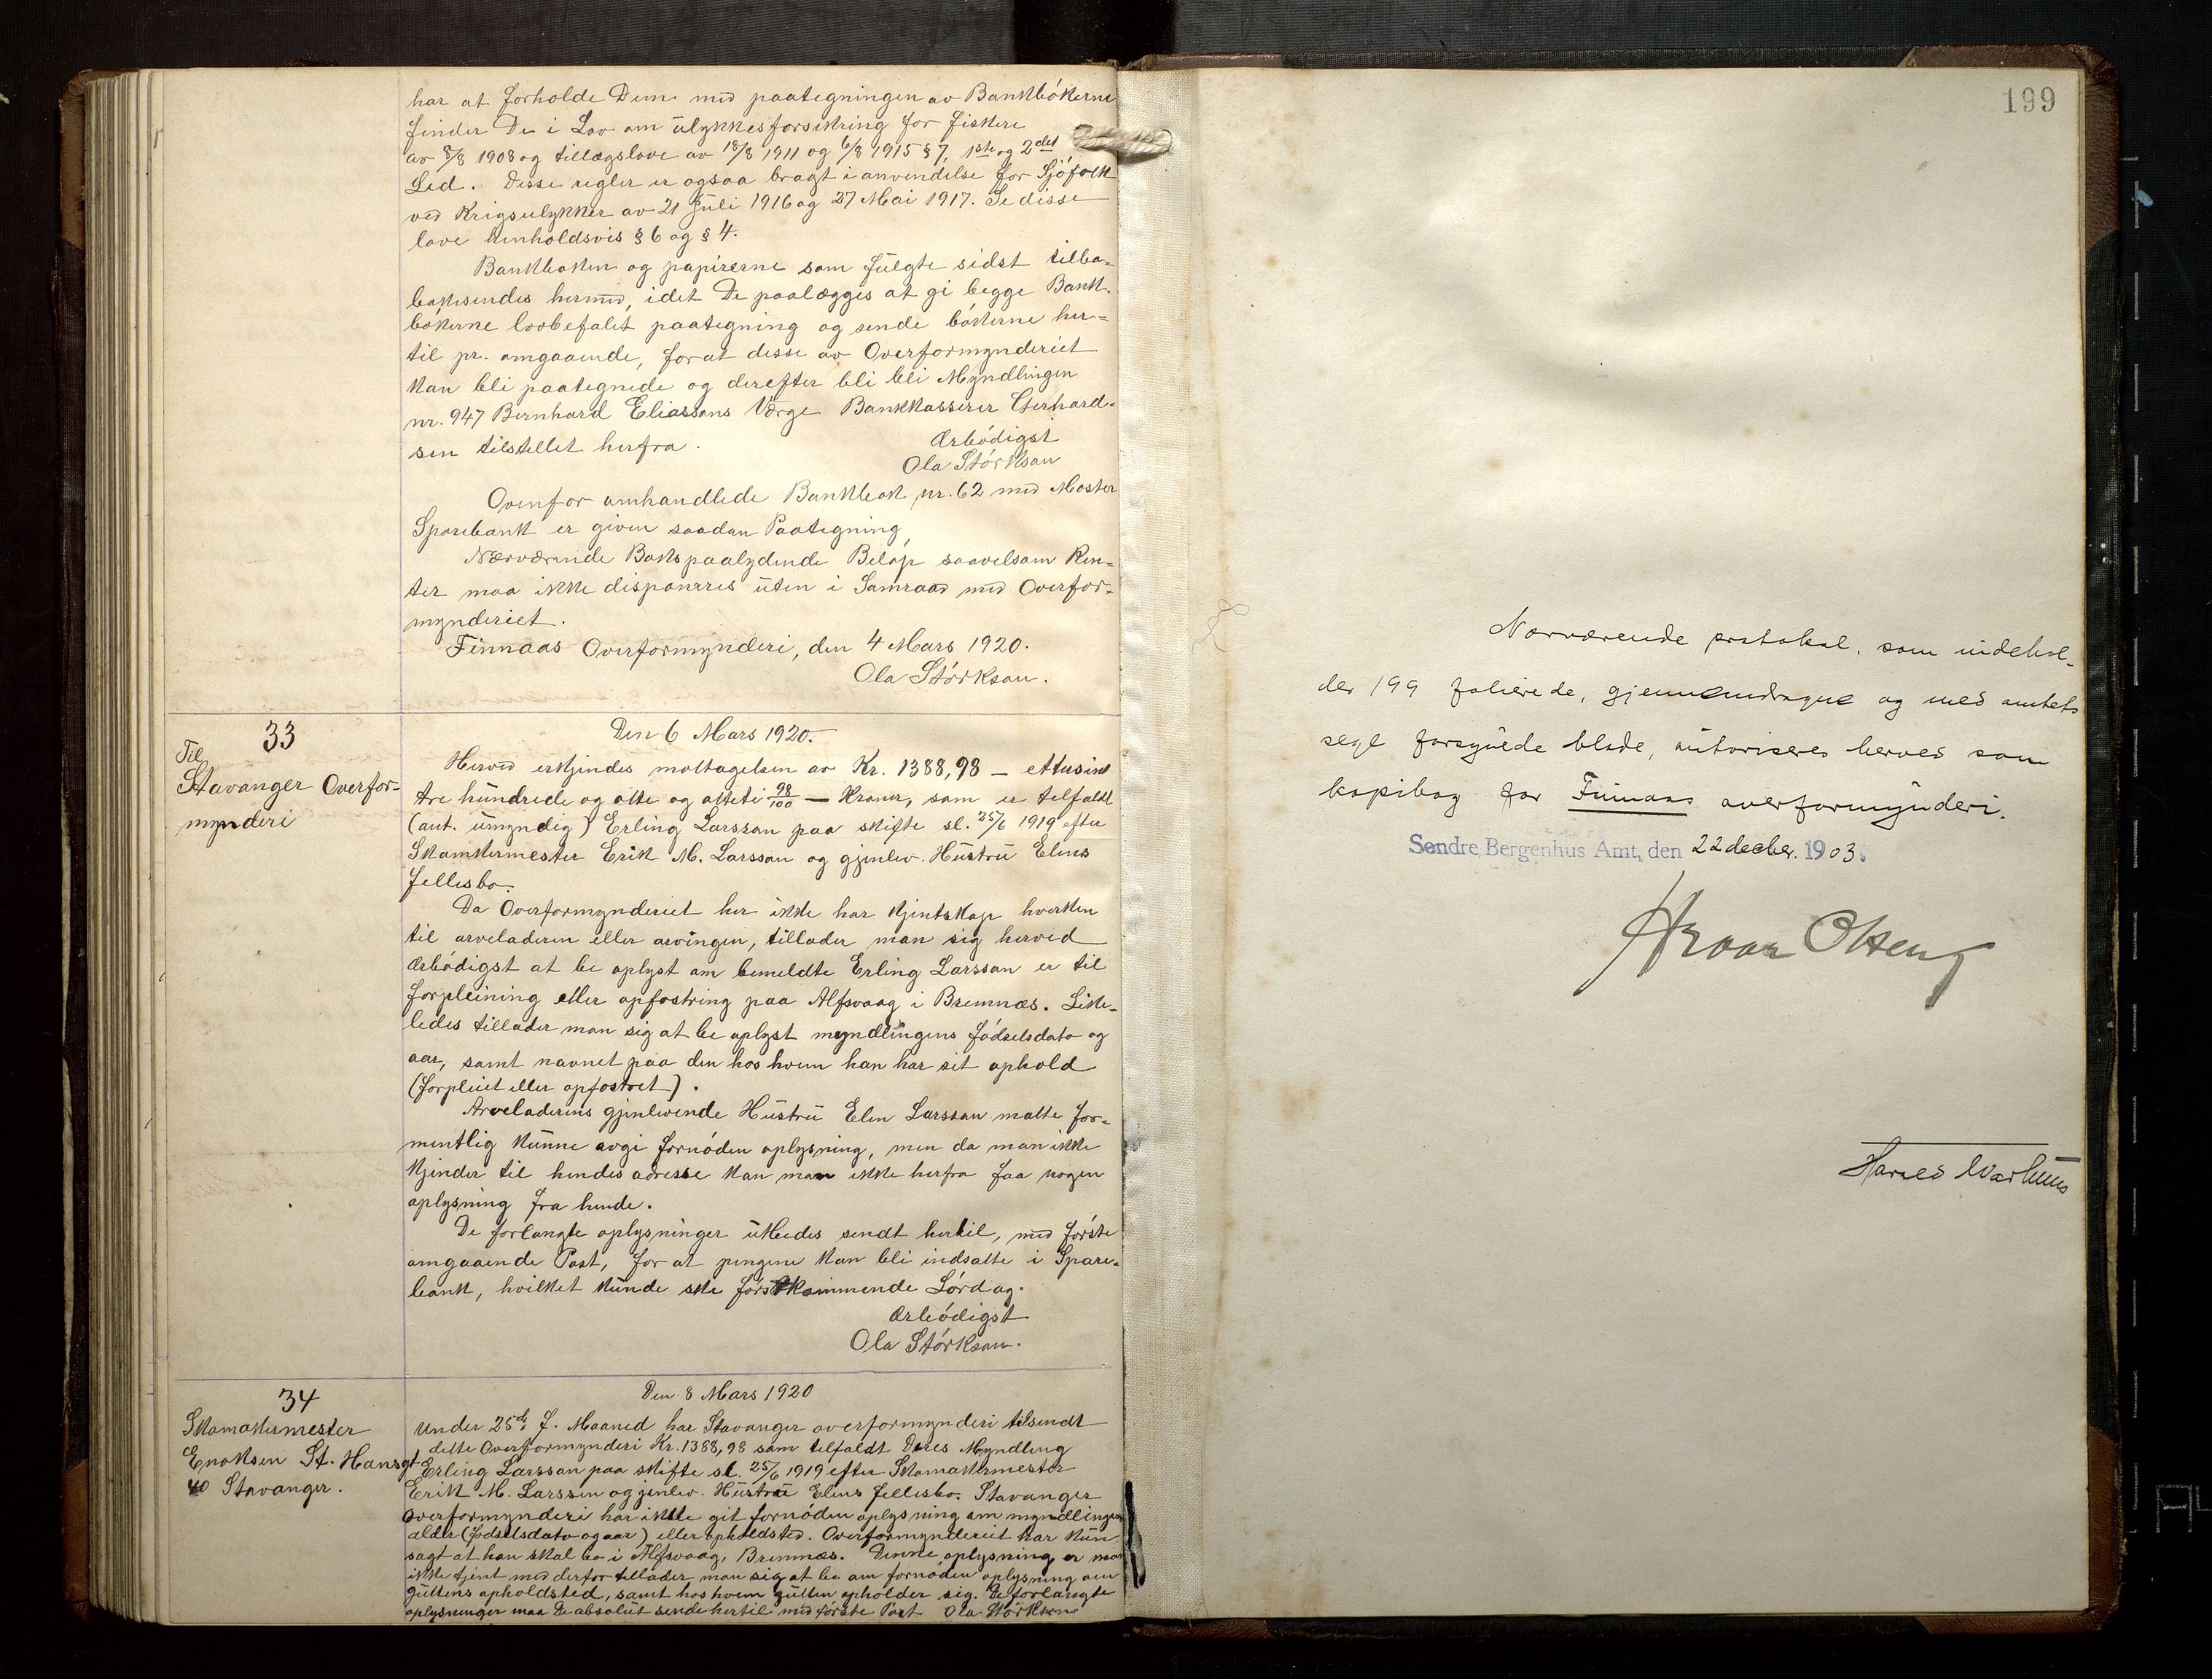 har at forholde Dem med paategningen av Bankbökerne
finder De i Lov om ulykkesforsikring for fiskere
av 8/8 1908 og tillægslove av 18/8 1911 og 6/8 1915 § 7, 1ste og 2det
Led. Disse regler er ogsaa bragt i anvendelse for Sjöfolk
ved Krigsulykker av 21 Juli 1916 og 27 Mai 1917. Se disse
love henholdsvis § 6 og § 4.
Bankboken og papirerne som fulgte sidst tilba-
bakesendes hermed, idet De paalægges at gi begge Bank-
bökerne lovbefalet paategning og sende bökerne her-
til pr. omgaaende, forat disse av Overformynderiet
kan bli paategnede og derefter bli bli Myndlingen
nr. 947 Bernhard Eliassens Værge Bankkasserer Gerhard-
sen tilstillet herfra.
Ærbödigst
Ola Störkson
Ovenfor omhandlede Bankbok nr. 62 med Moster
Sparebank er given saadan Paategning
Nærværende Boks paalydende Belöp saavelsom Ren-
ter maa ikke disponeres uten i Samraad med Overfor-
mynderiet.
Finnaas Overformynderi, den 4 Mars 1920.
Ola Störkson.
33
Til
Stavanger Overfor-
mynderi
Den 6 Mars 1920.
Herved erkjendes mottagelsen av Kr. 1388,98 — ettusind
tre hundrede og otte og otteti 98/100 — Kroner, som er tilfaldt
(ant. umyndig) Erling Larsson paa skifte sl. 25/6 1919 efter
Skomakermester Erik M. Larsson og gjenlev. Hustru Elens
Fellesbo.
Da Overformynderiet her ikke har kjentskap hverken
til arveladeren eller arvingen, tillader man sig herved
ærbödigst at be oplyst om bemeldte Erling Larsson er til
forpleining eller opfostring paa Alfsvaag i Bremnæs. Like-
ledes tillader man sig at be oplyst myndlingens födselsdato og
aar, samt navnet paa den hos hvem han har sit ophold
(forpleiet eller opfostret).
Arveladerens gjenlevende Hustru Elen Larsson matte for-
mentlig kunne avgi fornöden oplysning, men da man ikke
kjender til hendes adresse kan man ikke herfra faa nogen
oplysning fra hende.
De forlangte oplysninger utbedes sendt hertil, med förste
omgaaende Post, for at pengene kan bli indsatte i Spare-
bank, hvilket kunde ske förstkommende Lördag.
Ærbödigst
Ola Störkson.
34
Skomakermester
Enoksen St. Hansgt
40 Stavanger.
Den 8 Mars 1920
Under 25de f. Maaned har Stavanger overformynderi tilsendt
dette Overformynderi Kr. 1388,98 som tilfaldt Deres Myndling
Erling Larsson paa skifte sl. 25/6 1919 efter Skomakermester
Erik M. Larssen og gjenlev. Hustru Elens Fellesbo. Stavanger
overformynderi har ikke git fornöden oplysning om myndlingens
alder (födselsdato og aar) eller opholdsted. Overformynderiet har kun
sagt at han skal bo i Alfsvaag, Bremnæs. Denne oplysning er man
ikke tjent med derfor tillader man sig at be om fornöden oplysning om
guttens opholdsted, samt hos hvem gutten opholder sig. De forlangte
oplysninger maa De absolut sende hertil med förste Post Ola Störkson
199
Nærværende protokol, som indehol-
der 199 folierede, gjennemdragne og med amtets
segl forsynede blade, autoriseres herved som
kopibog for Finnaas overformynderi.
Søndre Bergenhus Amt, den 22 decbr. 1903.
Hroar Olsen